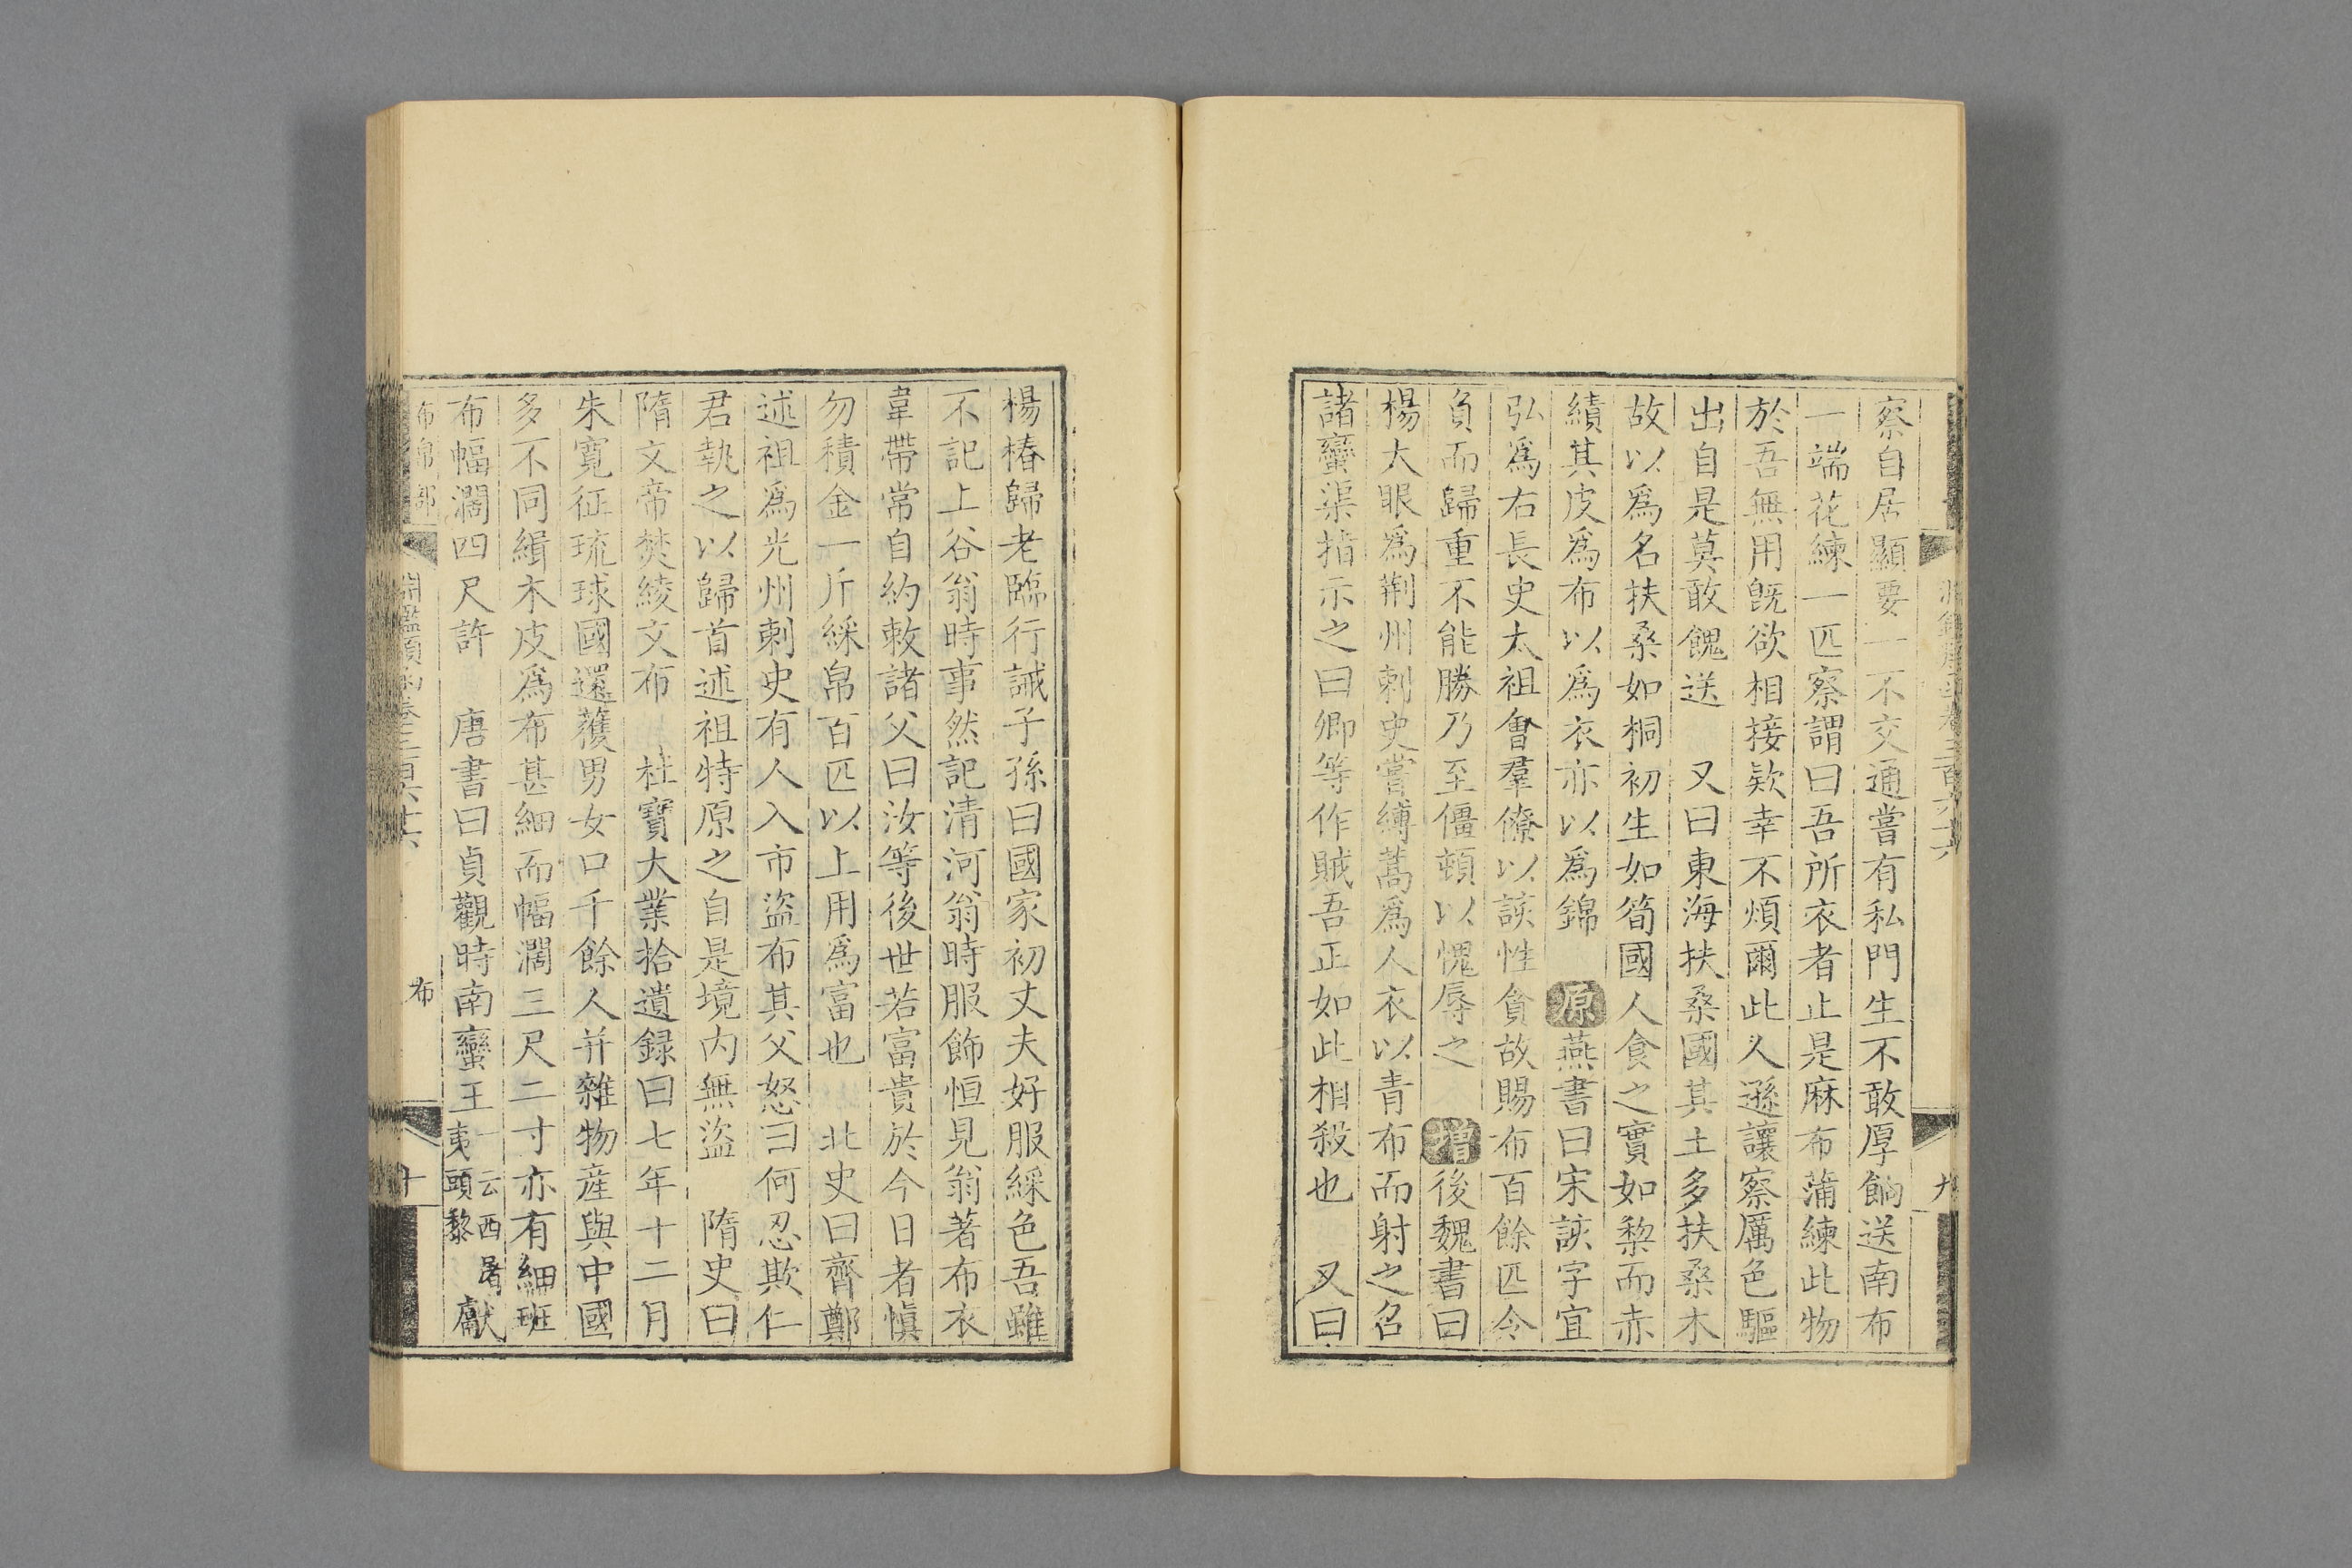 察自居顯要一不交通嘗有私門生不敢厚餉送南布
一端花練一匹察謂曰吾所衣者止是麻布蒲練此物
於吾無用旣欲相接欵幸不煩爾此人遜讓察厲色驅
出自是莫敢餽送　又曰東海扶桑國其土多扶桑木
故以爲名扶桑如桐初生如筍國人食之實如棃而赤
績其皮爲布以爲衣亦以爲錦　原燕書曰宋該字宜
弘爲右長史太祖會羣僚以該性貪故賜布百餘匹令
負而歸重不能勝乃至僵頓以愧辱之　增後魏書曰
楊大眼爲荆州刺史嘗縛蒿爲人衣以青布而射之召
諸蠻渠指示之曰卿等作賊吾正如此相殺也　又曰
九
楊椿歸老臨行誡子孫曰國家初丈夫好服綵色吾雖
不記上谷翁時事然記清河翁時服飾恒見翁著布衣
韋帶常自約敕諸父曰汝等後世若富貴於今日者愼
勿積金一斤綵帛百匹以上用爲富也　北史曰齊鄭
述祖爲光州刺史有人入市盜布其父怒曰何忍欺仁
君執之以歸首述祖特原之自是境内無盜　隋史曰
隋文帝焚綾文布　杜寶大業拾遺録曰七年十二月
朱寬征琉球國還獲男女口千餘人并雜物産與中國
多不同緝木皮爲布甚細而幅濶三尺二寸亦有細班
布幅濶四尺許　唐書曰貞觀時南蠻王一云西屠夷頭黎獻
布帛部　淵鑑類函卷三百六十六　布　十